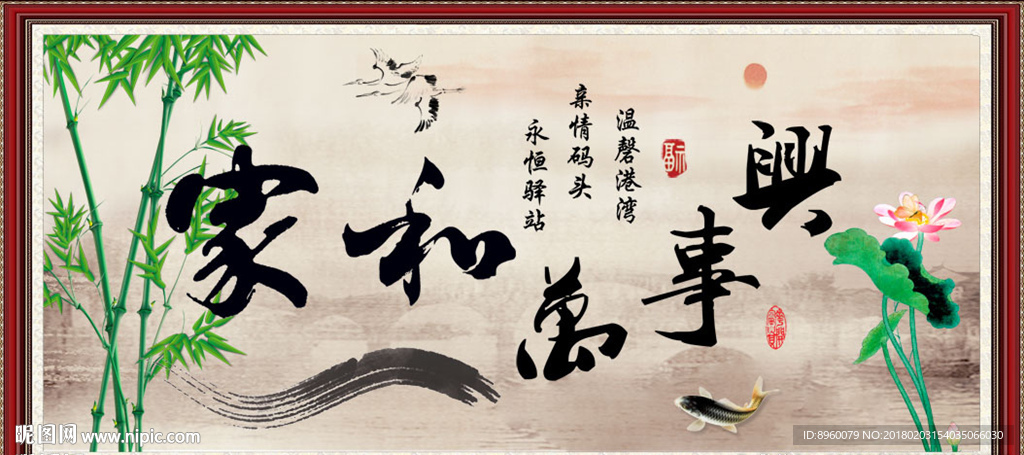 家和萬事興
温馨港湾
亲情码头
永恒驿站
福
昵图网 www.nipic.com
ID:8960079 NO:20180203154035066030